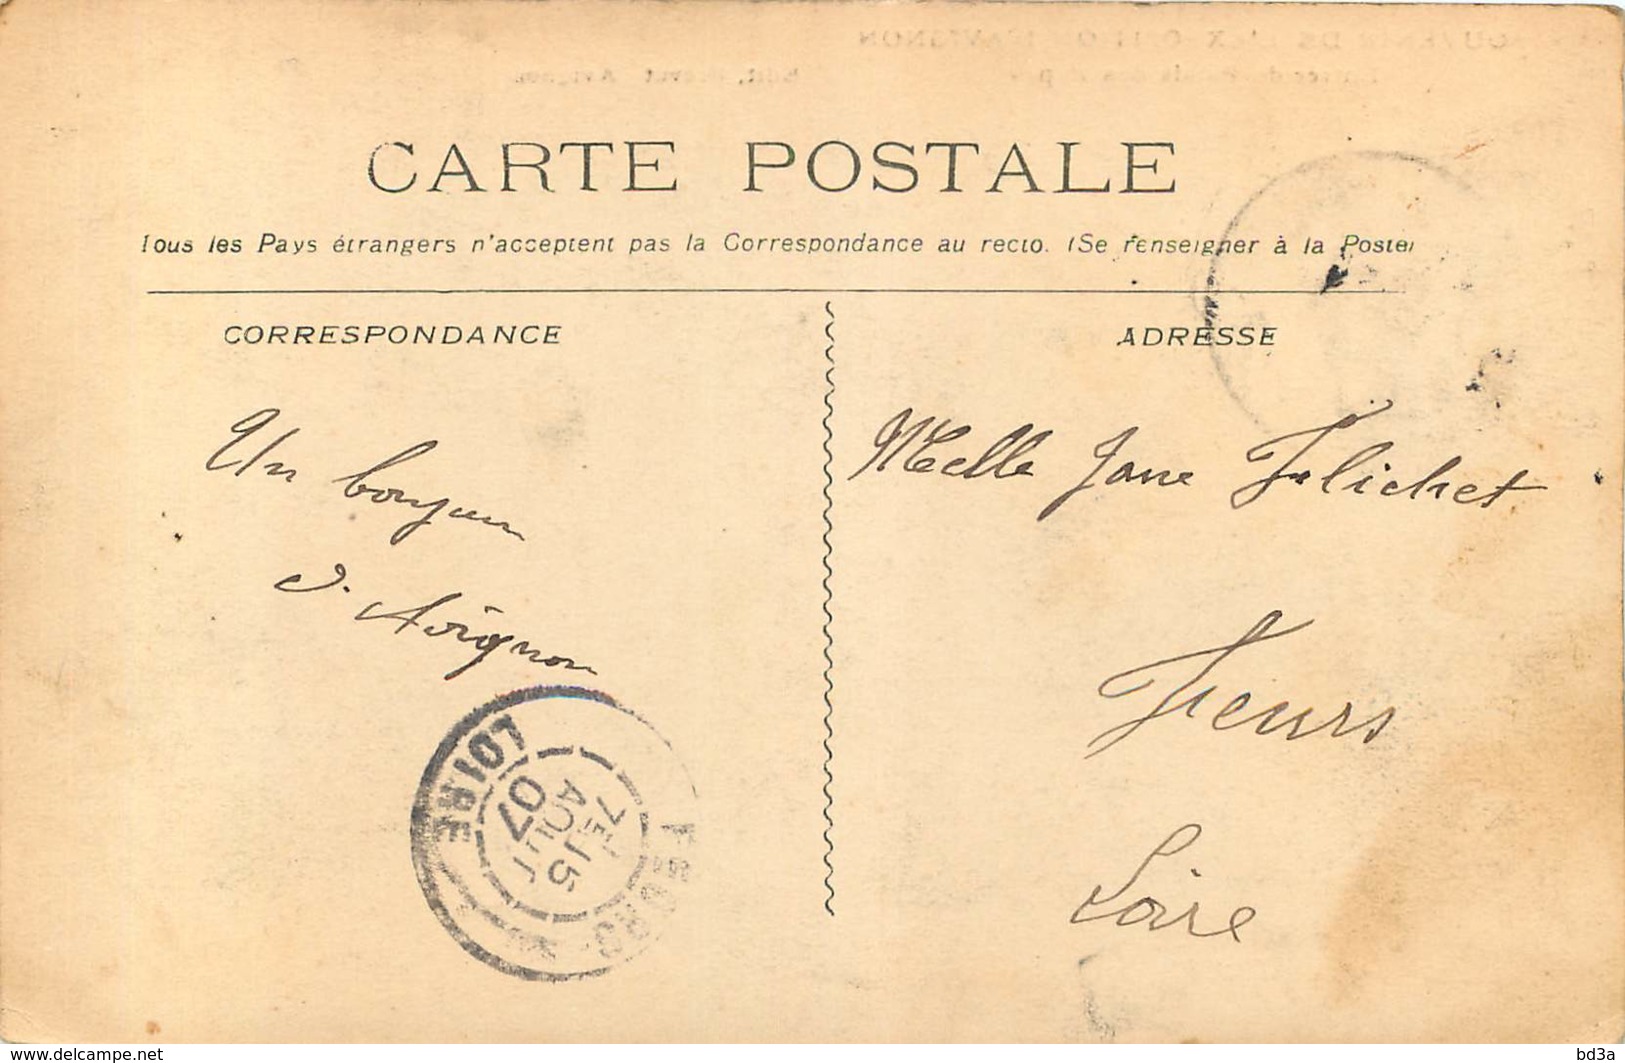 CARTE POSTALE
Tous les Pays étrangers n'acceptent pas la Correspondance au recto. (Se renseigner à la Poste)
CORRESPONDANCE
ADRESSE
Un bonjour
d'Avignon
Melle Jane
Feurs
Loire
FEURS
LOIRE
7E 15
AOUT
07
www.delcampe.net
bd3a